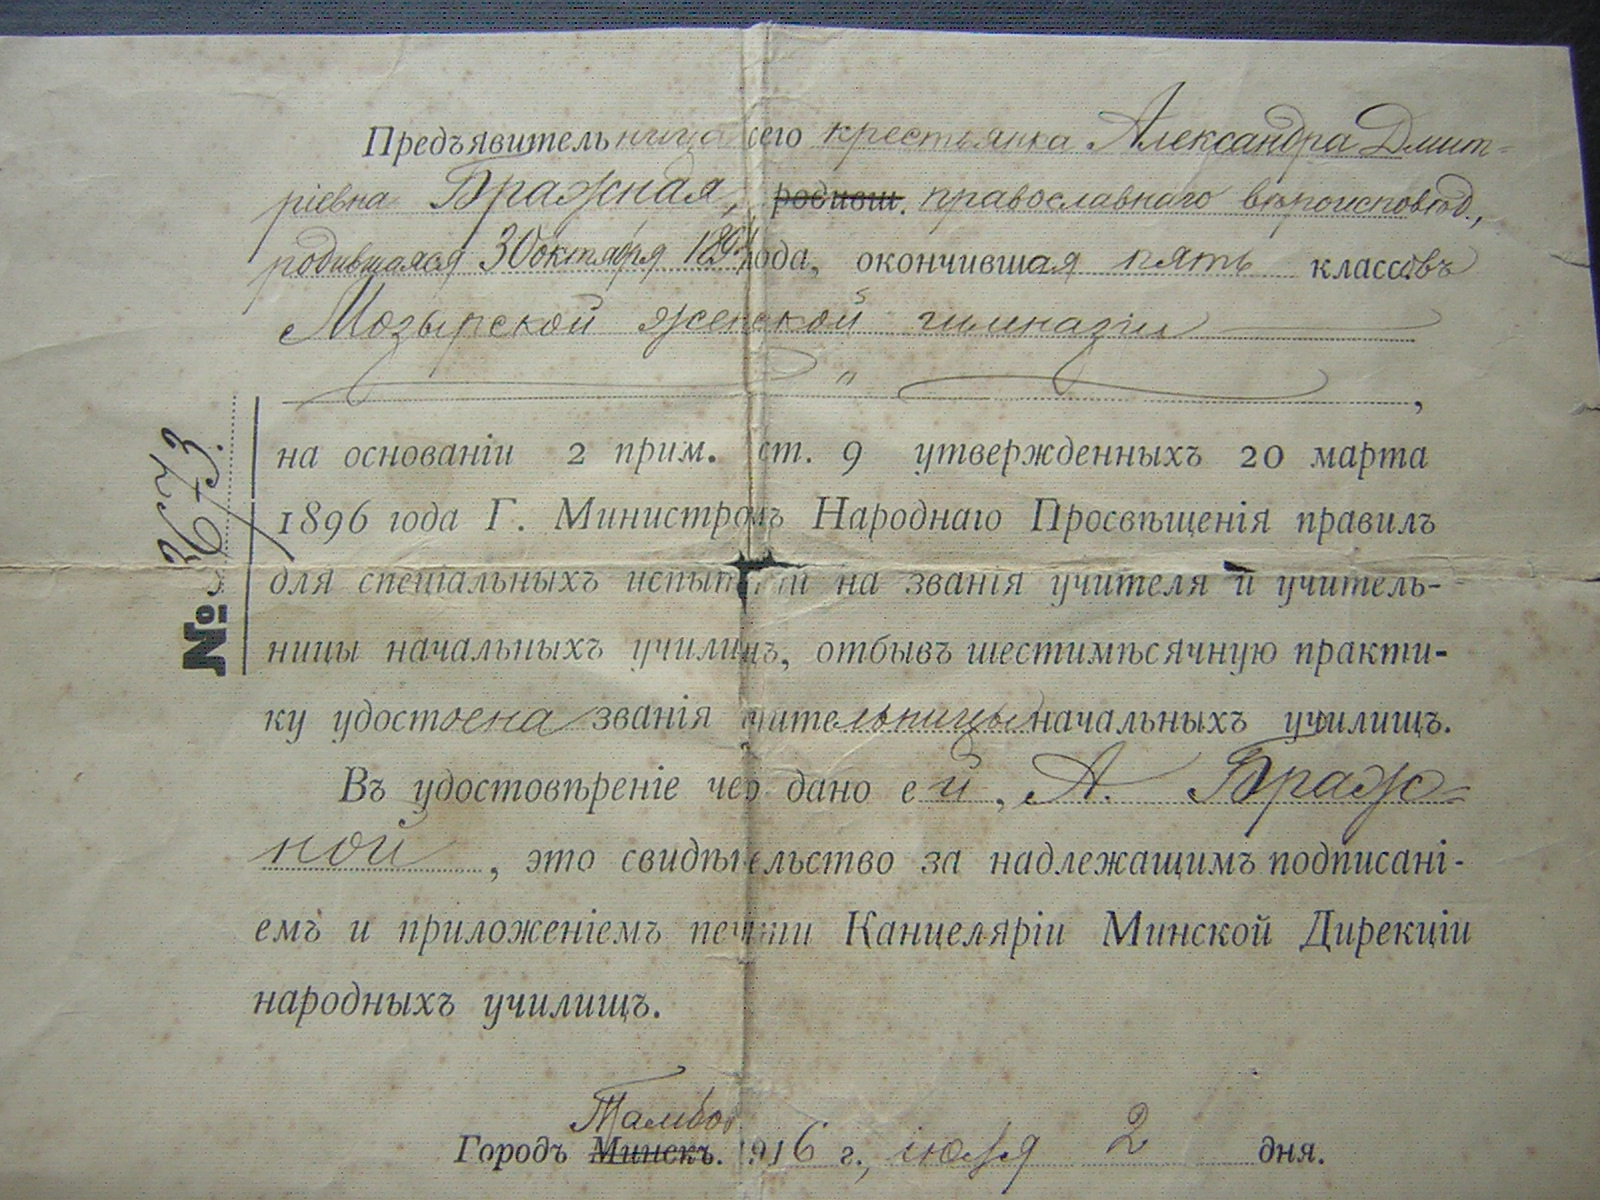 Предъявительница сего крестьянка Александра Дмит-
ріевна Бражная, родивш. православнаго вѣроисповѣд.,
родившаяся 30 октября года, окончившая пять классовъ
Мозырской женской гимназіи
„ ,
на основаніи 2 прим. ст. 9 утвержденныхъ 20 марта
1896 года Г. Министромъ Народнаго Просвѣщенія правилъ
для спеціальныхъ испытаній на званія учителя и учитель-
ницы начальныхъ училищъ, отбывъ шестимѣсячную практи-
ку удостоена званія учительницы начальныхъ училищъ.
Въ удостовѣреніе чего дано ей, А. Браж-
ной, это свидѣтельство за надлежащимъ подписані-
емъ и приложеніемъ печати Канцеляріи Минской Дирекціи
народныхъ училищъ.
Тамбов
Городъ Минскъ. 1916 г., іюля 2 дня.
№ 3673.